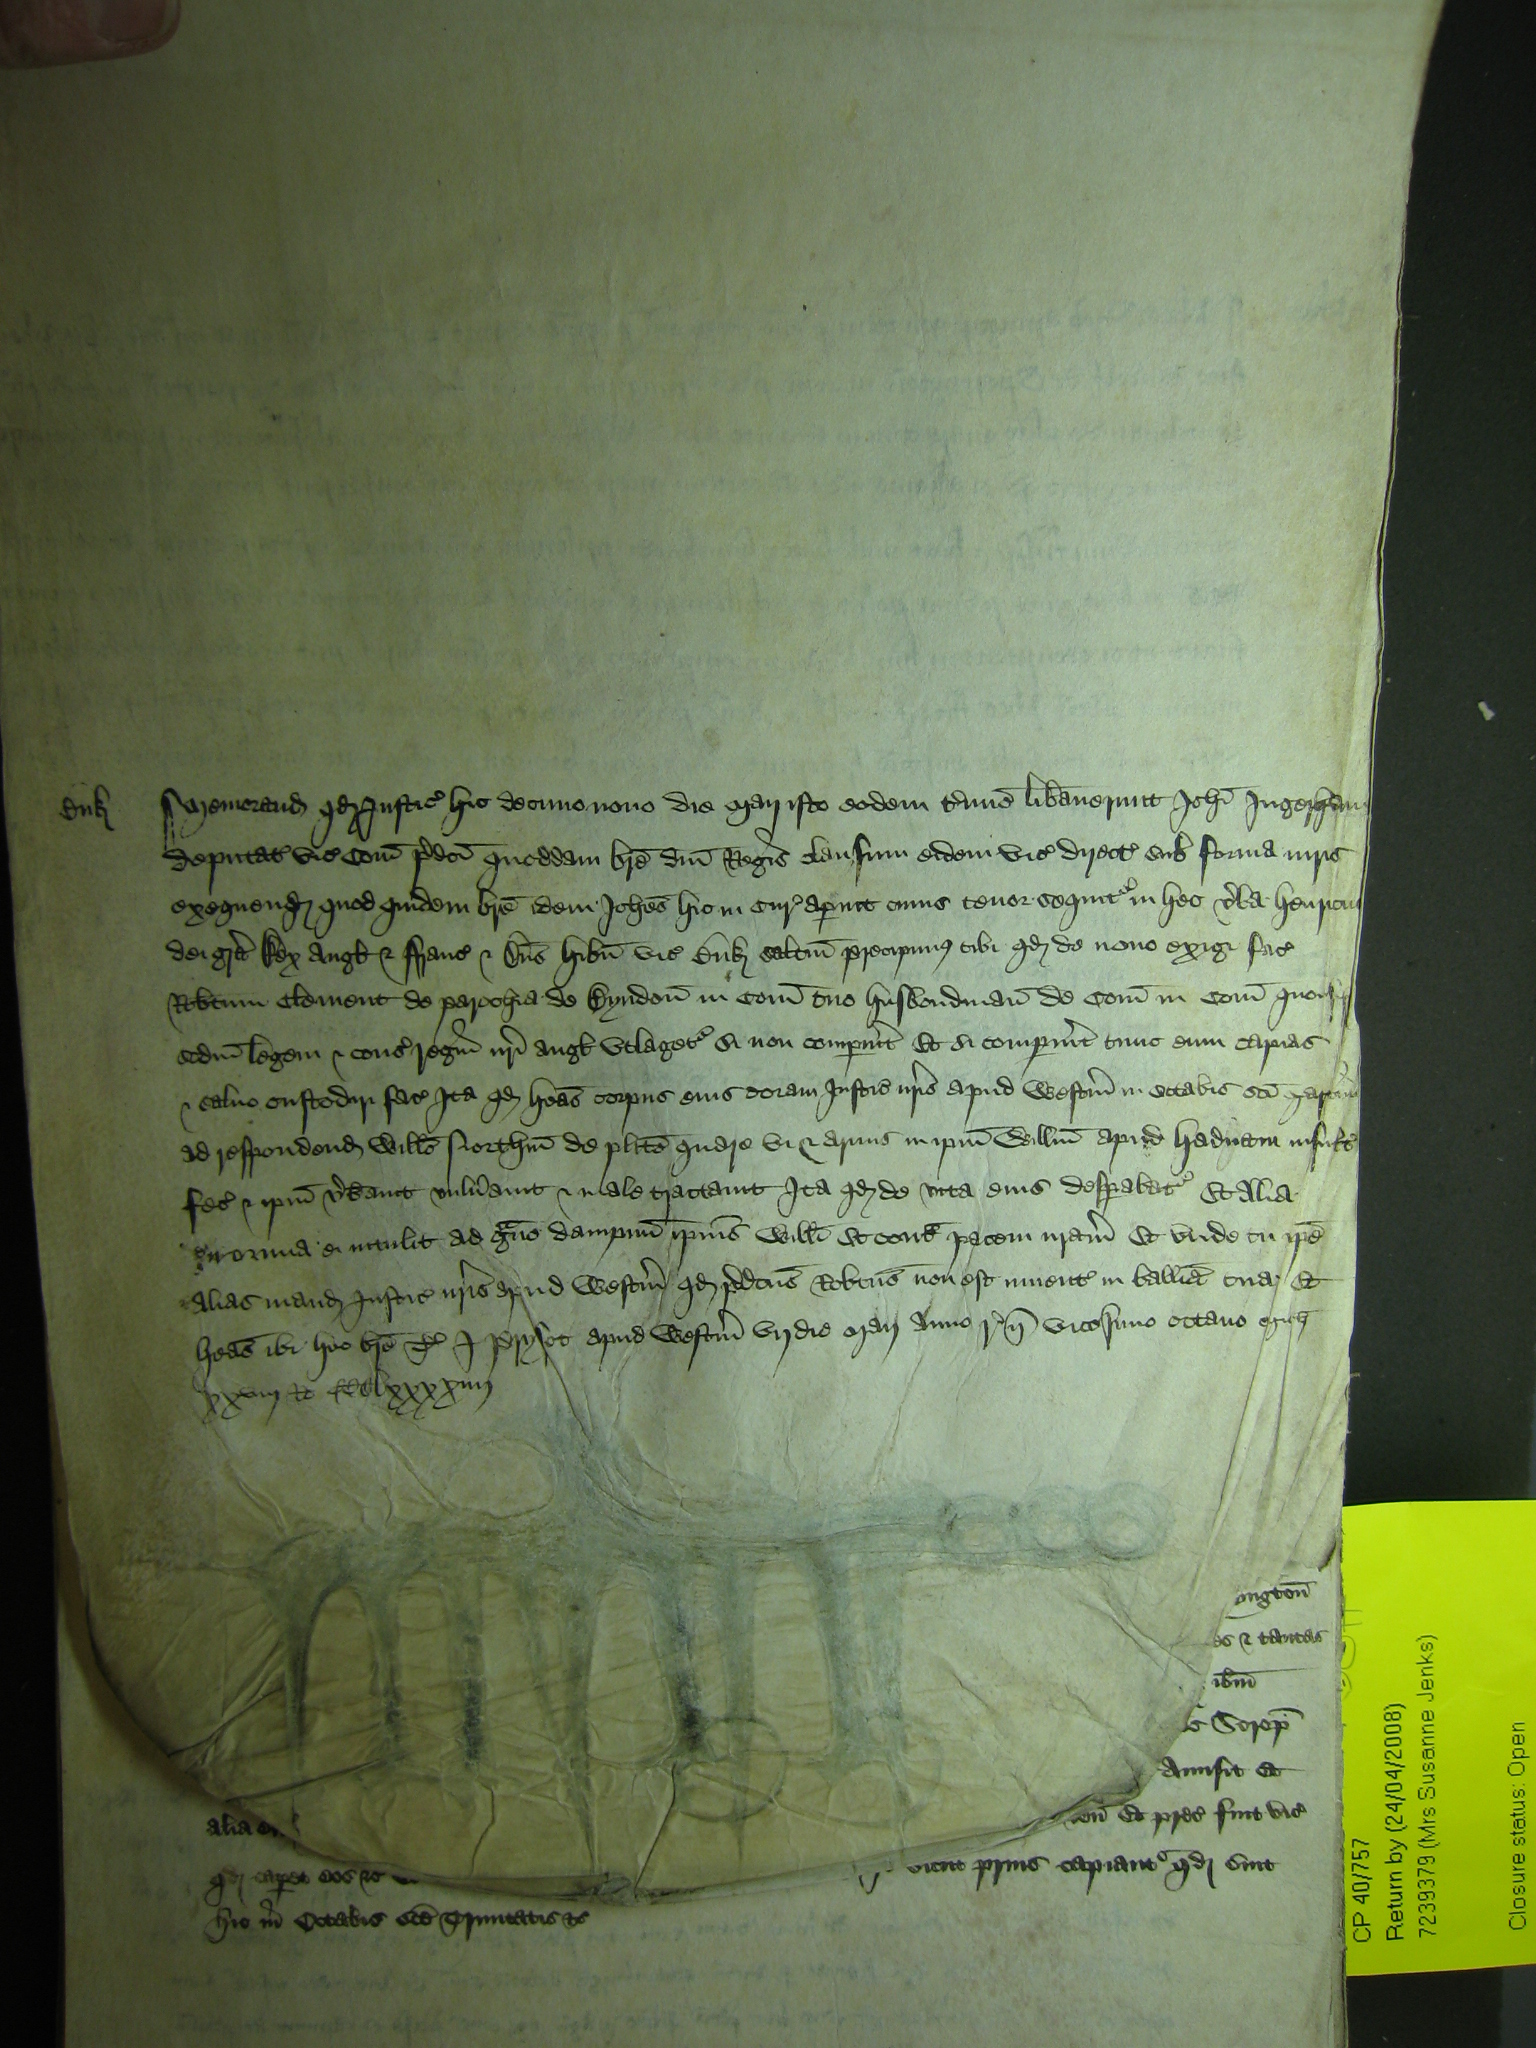 Buk Memorand qd Justic hic decimo nono die Maij isto eodem tmino libaverunt Johi
deputat vic Com pdci quoddam bre dni Regis clausum eidem vic direct sub forma iuris
exequend quod quidem bre idem Johes hic in Cur apuit cuius tenor sequit in hec vba Henricus
dei gra Rex Angl & Franc & Dns Hibn vic Buk saltm precipimus tibi qd de novo exigi fac
Robtum Clement de parochia de in Com tuo husbondman de Com in Com quousq
scdm legem & cons regni nri Angl utlaget si non compuit Et si compuit tunc eum capias
& salvo custodiri fac Ita qd heas corpus eius coram Justic nris apud Westm in Octabis sci Martini
ad respondend Willo Northin de plito quare vi & armis in ipm Willm apud insult
fec & ipm vbavit vulnavit & male tractavit Ita qd de vita eius despabat Et Alia
enormia ei intulit ad gve dampnum ipius Willi Et cont pacem nram Et unde tu ipe
alias mand Justic nris apud Westm qd pdcus Robtus non est invent in balliva tua Et
heas ibi hoc bre T J Prysot apud Westm vij die Maij Anno r n vicesimo octavo
xxviij Ro CClxxxxiiij
ngton
es & tantas
ibm
Scrop
Amisit Et
alia Et pres sunt vic
qd capet eos &c prius capiant qd sint
hic in Octabis sce Trinitatis &c
CP 40/757
Return by (24/04/2008)
7239379 (Mrs Susanne Jenks)
Closure status: Open